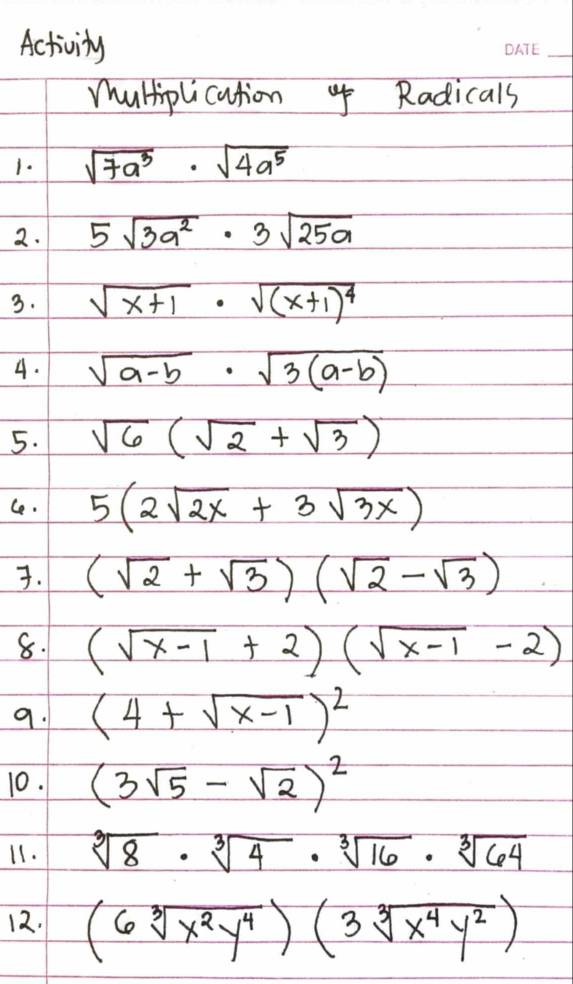 Activity
DATE
Multiplication of Radicals
1. √7a³ · √4a⁵
2. 5√3a² · 3√25a
3. √x+1 · √(x+1)⁴
4. √a-b · √3(a-b)
5. √6 (√2 + √3)
6. 5(2√2x + 3√3x)
7. (√2 + √3)(√2 - √3)
8. (√x-1 + 2)(√x-1 - 2)
9. (4 + √x-1)²
10. (3√5 - √2)²
11. ∛8 · ∛4 · ∛16 · ∛64
12. (6∛x²y⁴)(3∛x⁴y²)